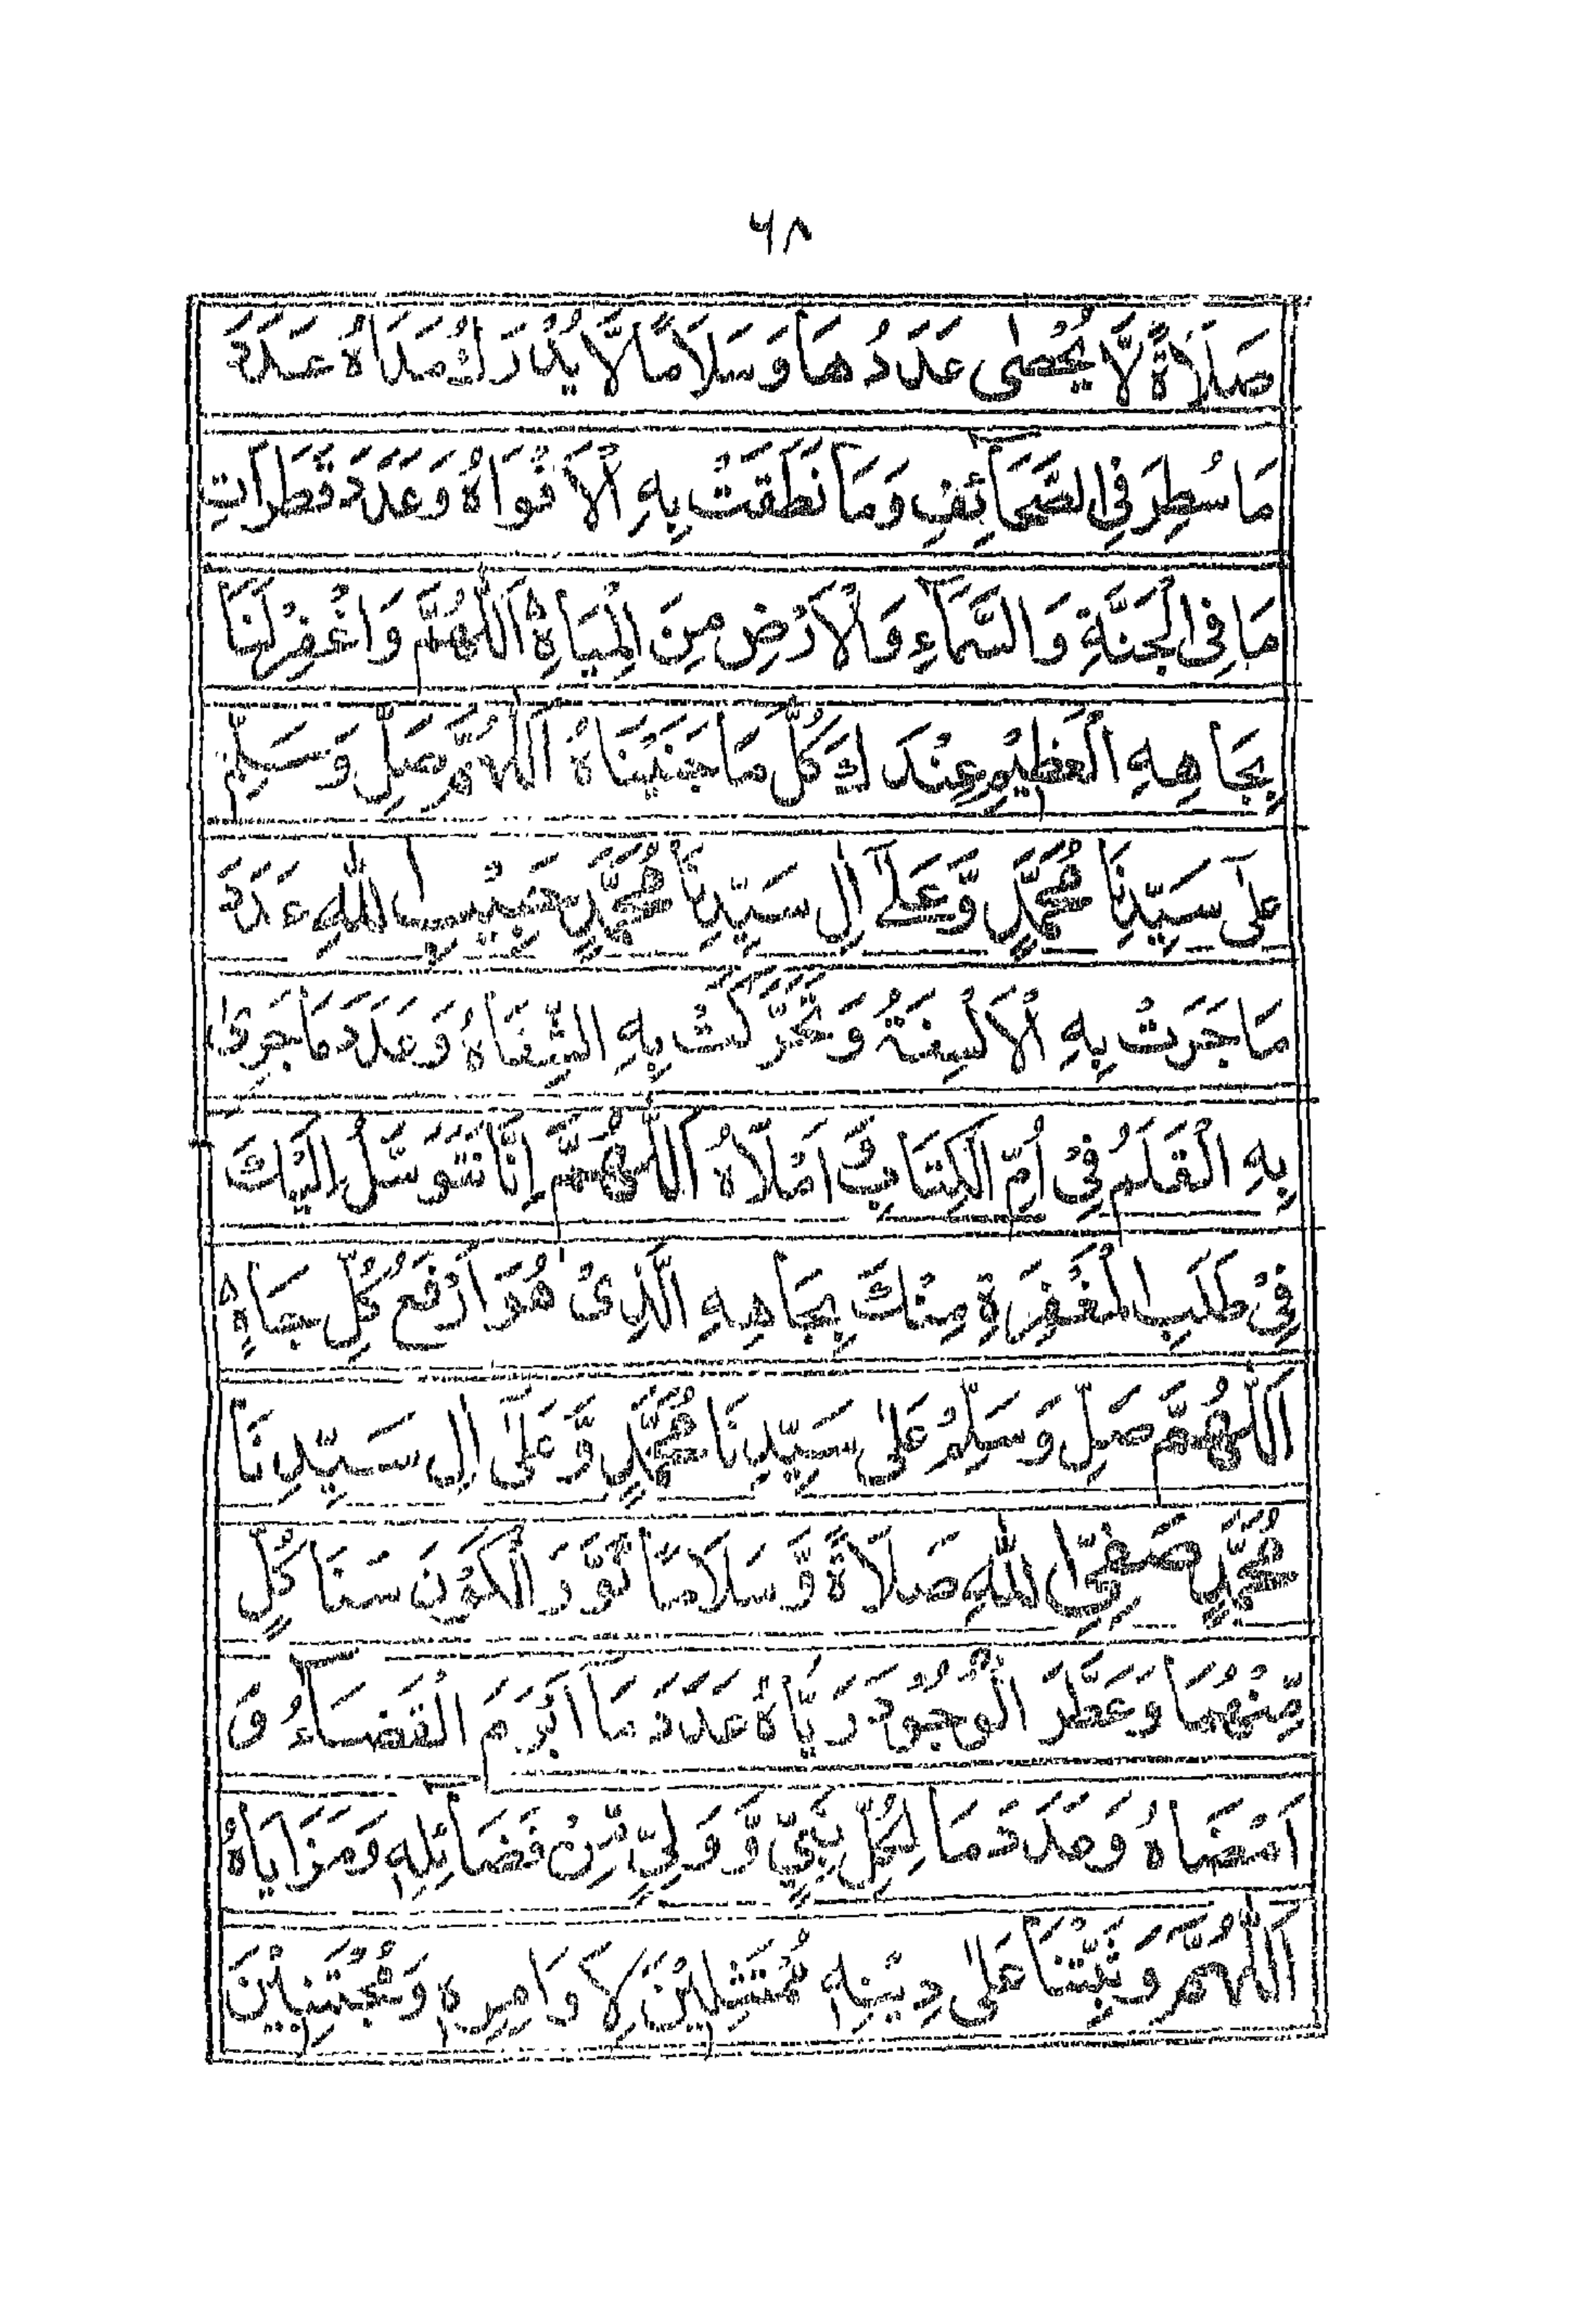 ۶۸
صَلَاةً لَّا يُحْصٰى عَدَدُهَا وَسَلَامًا لَّا يُدْرَكُ مَدَاهُ عَدَدَ
مَا سُطِرَ فِى الصَّحَآئِفِ وَمَا نَطَقَتْ بِهِ الْاَفْوَاهُ وَعَدَدَ قَطَرَاتِ
مَا فِى الْجَنَّةِ وَالسَّمَآءِ وَالْاَرْضِ مِنَ الْمِيَاهِ اَللّٰهُمَّ وَاغْفِرْلَنَا
بِجَاهِهِ الْعَظِيْمِ عِنْدَكَ كُلَّ مَا جَنَيْنَاهُ اَللّٰهُمَّ صَلِّ وَسَلِّمْ
عَلٰى سَيِّدِنَا مُحَمَّدٍ وَّعَلٰٓى اٰلِ سَيِّدِنَا مُحَمَّدٍ حَبِيْبِ اللّٰهِ عَدَدَ
مَا جَرَتْ بِهِ الْاَلْسِنَةُ وَتَحَرَّكَتْ بِهِ الشِّفَاهُ وَعَدَدَ مَا جَرٰى
بِهِ الْقَلَمُ فِىْ اُمِّ الْكِتَابِ وَ اَمْلَاهُ اَللّٰهُمَّ اِنَّا نَتَوَسَّلُ اِلَيْكَ
فِىْ طَلَبِ الْمَغْفِرَةِ مِنْكَ بِجَاهِهِ الَّذِىْ هُوَ اَرْفَعُ كُلِّ جَاهٍ
اَللّٰهُمَّ صَلِّ وَسَلِّمْ عَلٰى سَيِّدِنَا مُحَمَّدٍ وَّعَلٰٓى اٰلِ سَيِّدِنَا
مُحَمَّدٍ صَفِىِّ اللّٰهِ صَلَاةً وَّسَلَامًا نَوَّرَ الْكَوْنَ سَنَا كُلٍّ
مِّنْهُمَا وَعَطَّرَ الْوُجُوْدَ رَيَّاهُ عَدَدَ مَا اَبْرَمَ الْقَضَآءُ وَ
اَمْضَاهُ وَعَدَدَ مَا لِكُلِّ نَبِىٍّ وَّوَلِىٍّ مِّنْ فَضَآئِلِهٖ وَمَزَايَاهُ
اَللّٰهُمَّ وَثَبِّتْنَا عَلٰى دِيْنِهٖ مُمْتَثِلِيْنَ لِاَوَامِرِهٖ وَمُجْتَنِبِيْنَ